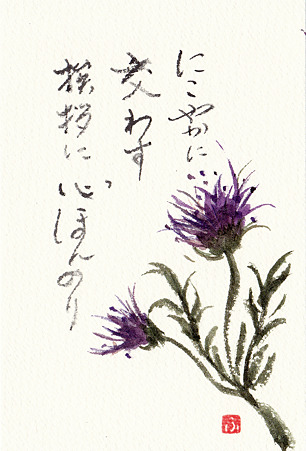 にこやかに
交わす
挨拶に心ほんのり